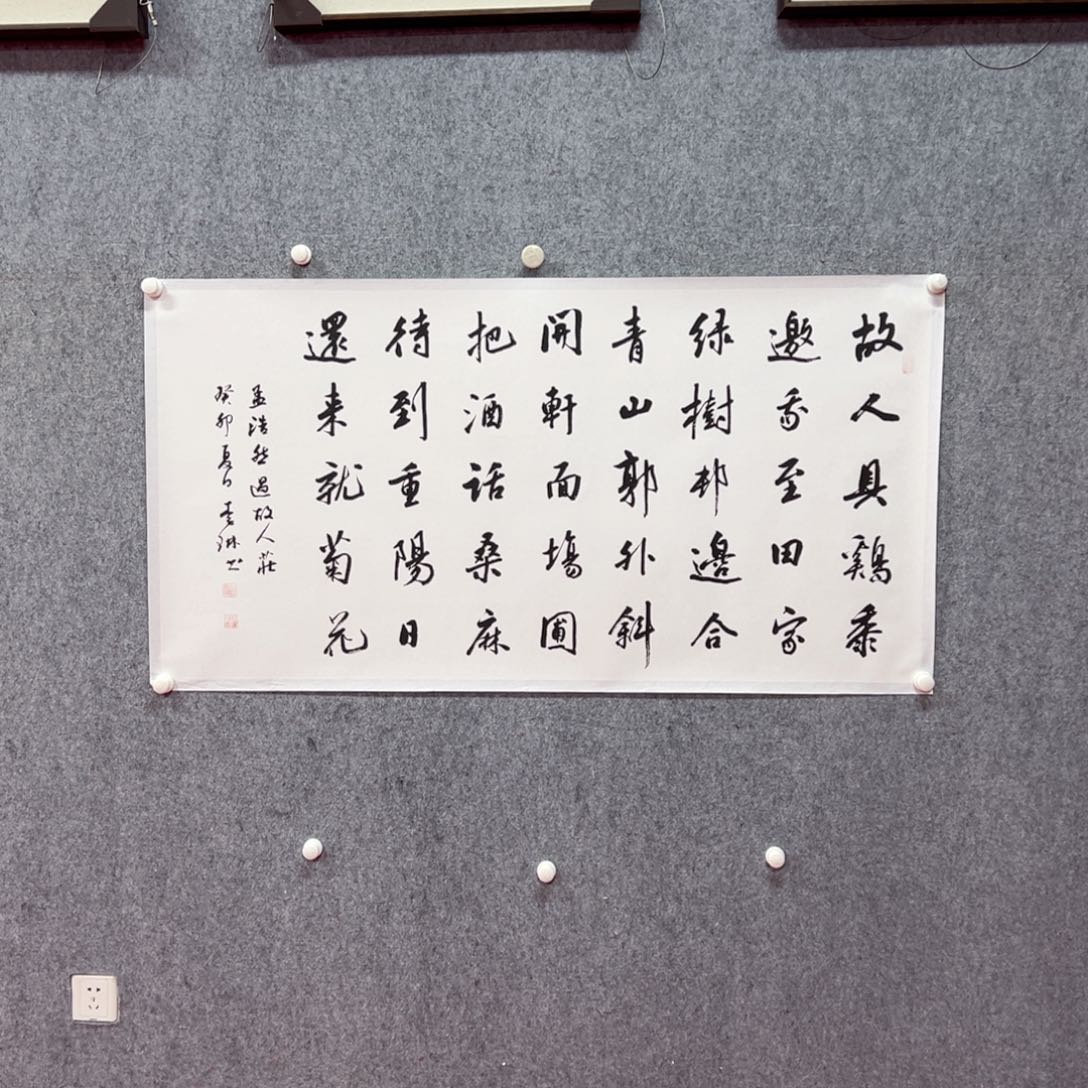 故人具鷄黍
邀我至田家
绿樹邨邊合
青山郭外斜
開軒面場圃
把酒话桑麻
待到重陽日
還来就菊花
孟浩然過故人莊
癸卯夏月李琳书